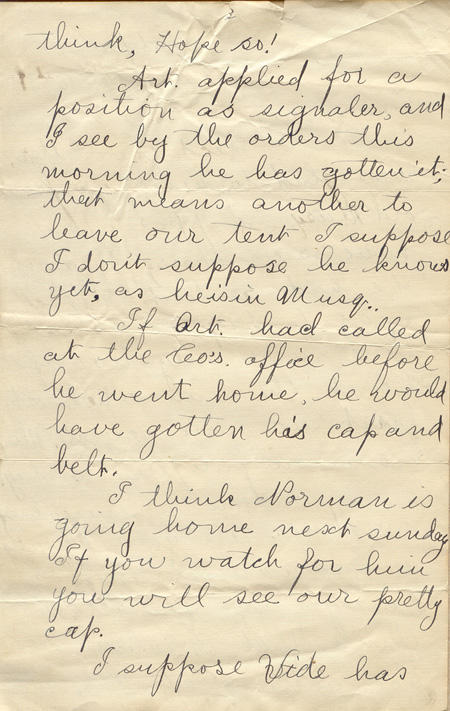 2
think, Hope so!
Art. applied for a
position as signaler, and
I see by the orders this
morning he has gotten it;
that means another to
leave our tent I suppose
I don't suppose he knows
yet, as he is in Musq..
If Art. had called
at the Co's. office before
he went home, he would
have gotten his cap and
belt.
I think Norman is
going home next sunday
If you watch for him
you will see our pretty
cap.
I suppose Vide has